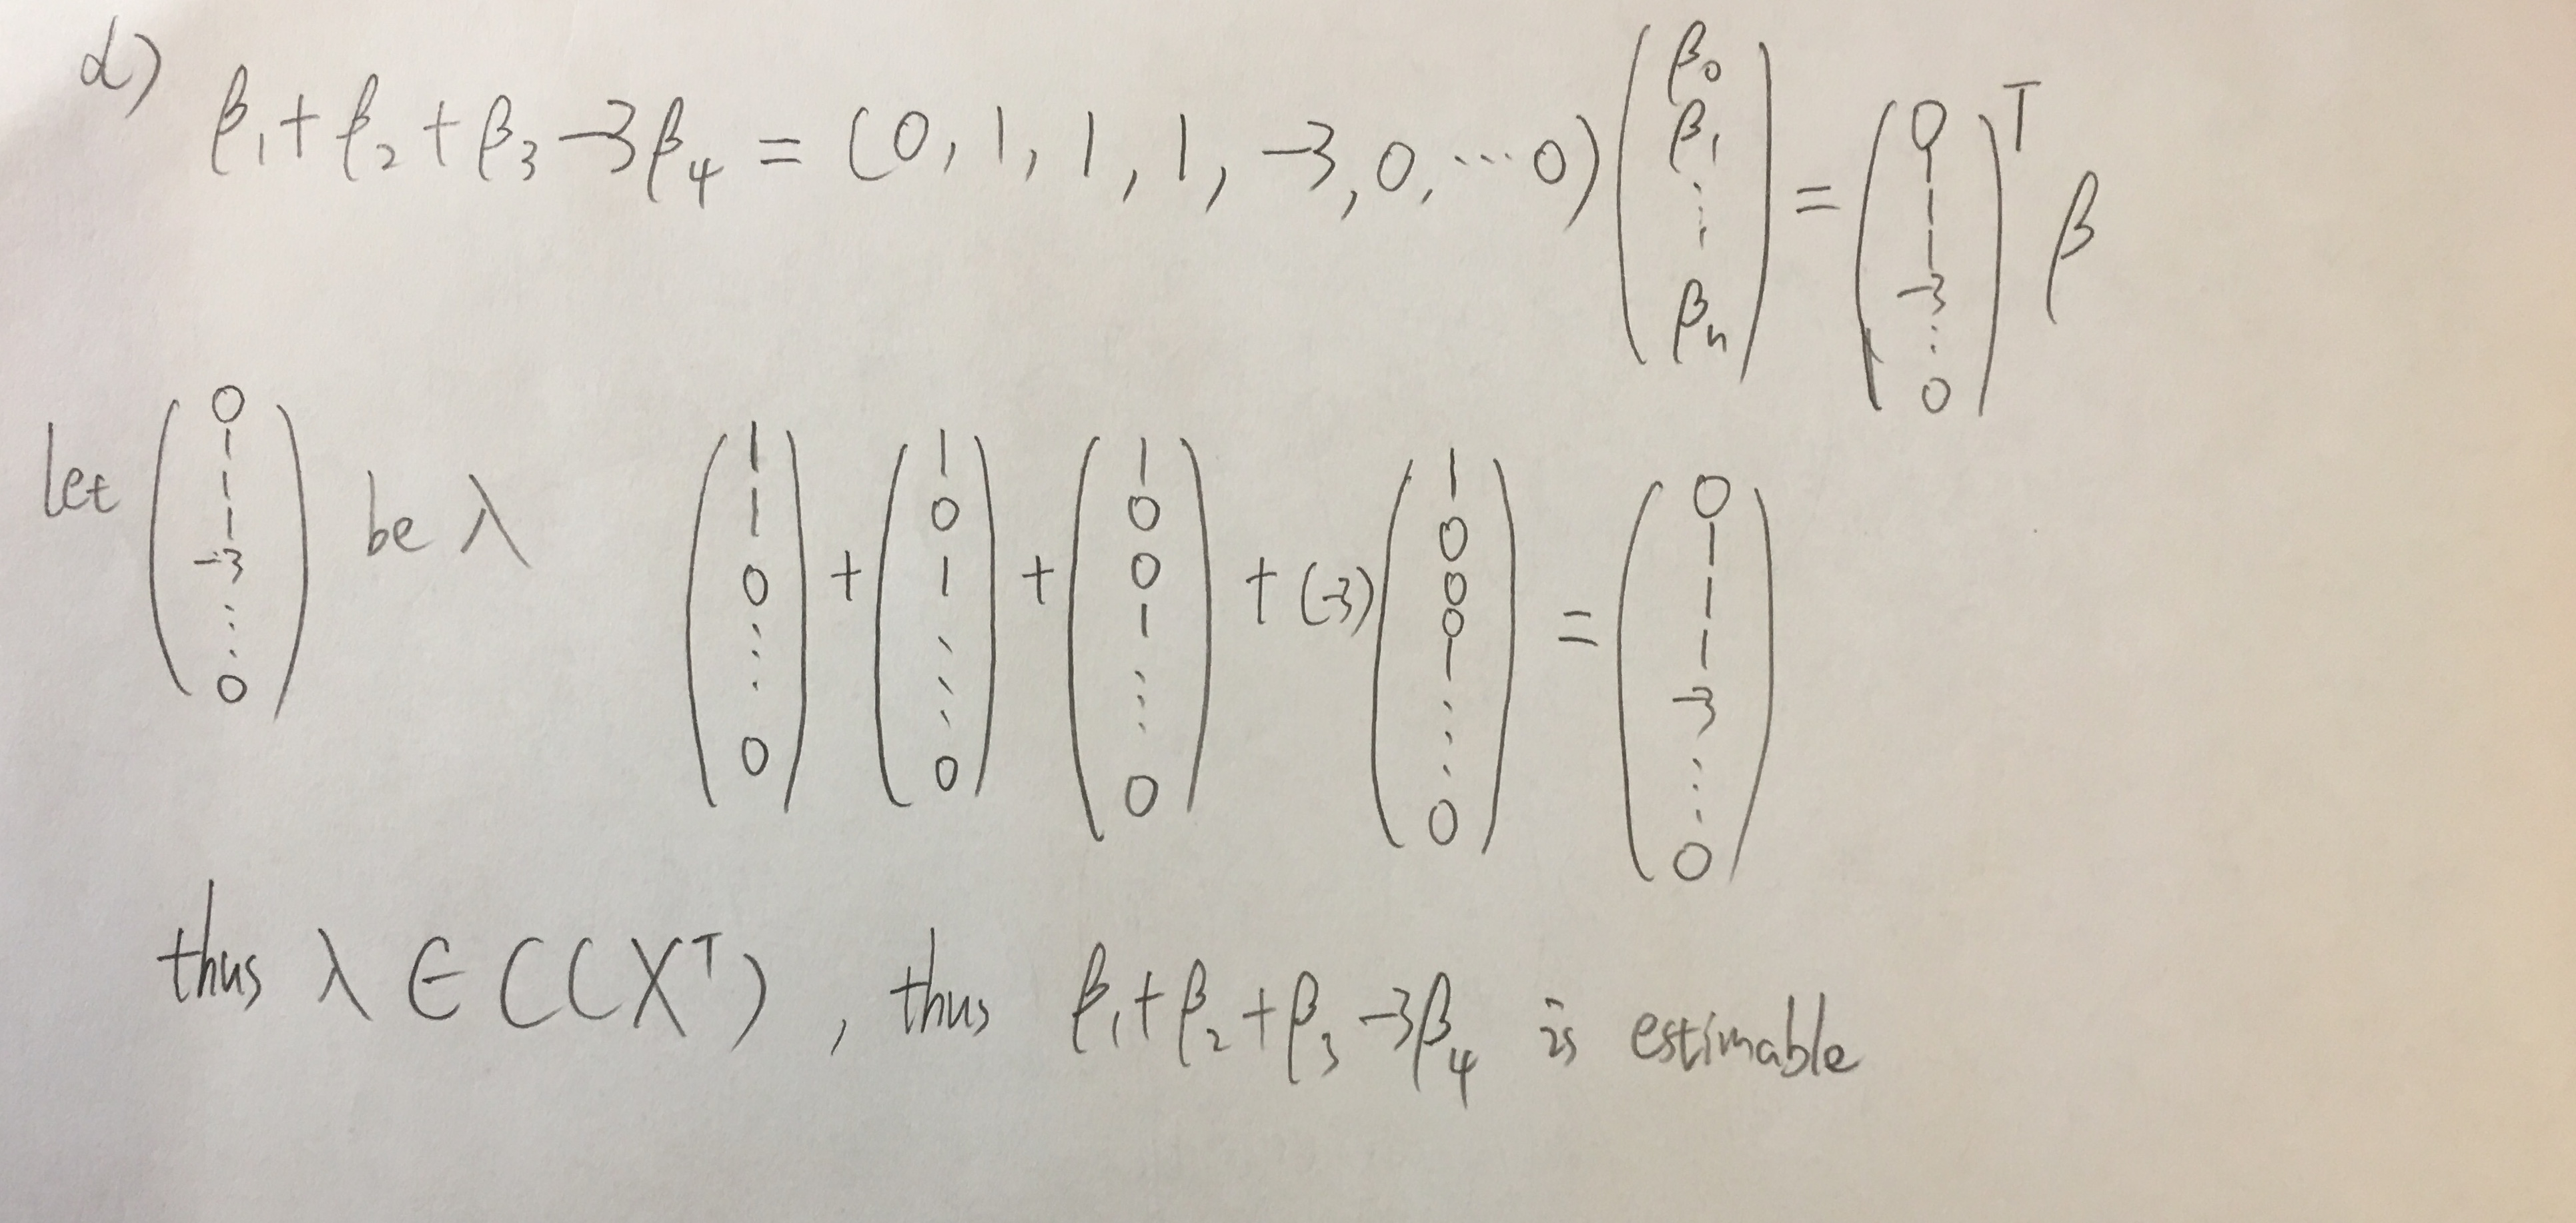 d) β₁+β₂+β₃-3β₄ = (0, 1, 1, 1, -3, 0, ⋯ 0) (β₀ β₁ ⋮ βₙ) = (0 1 1 1 -3 ⋮ 0)ᵀ β
let (0 1 1 1 -3 ⋮ 0) be λ (1 1 0 ⋮ 0) + (1 0 1 ⋮ 0) + (1 0 0 1 ⋮ 0) + (-3) (1 0 0 0 1 ⋮ 0) = (0 1 1 1 -3 ⋮ 0)
thus λ ∈ C(Xᵀ), thus β₁+β₂+β₃-3β₄ is estimable